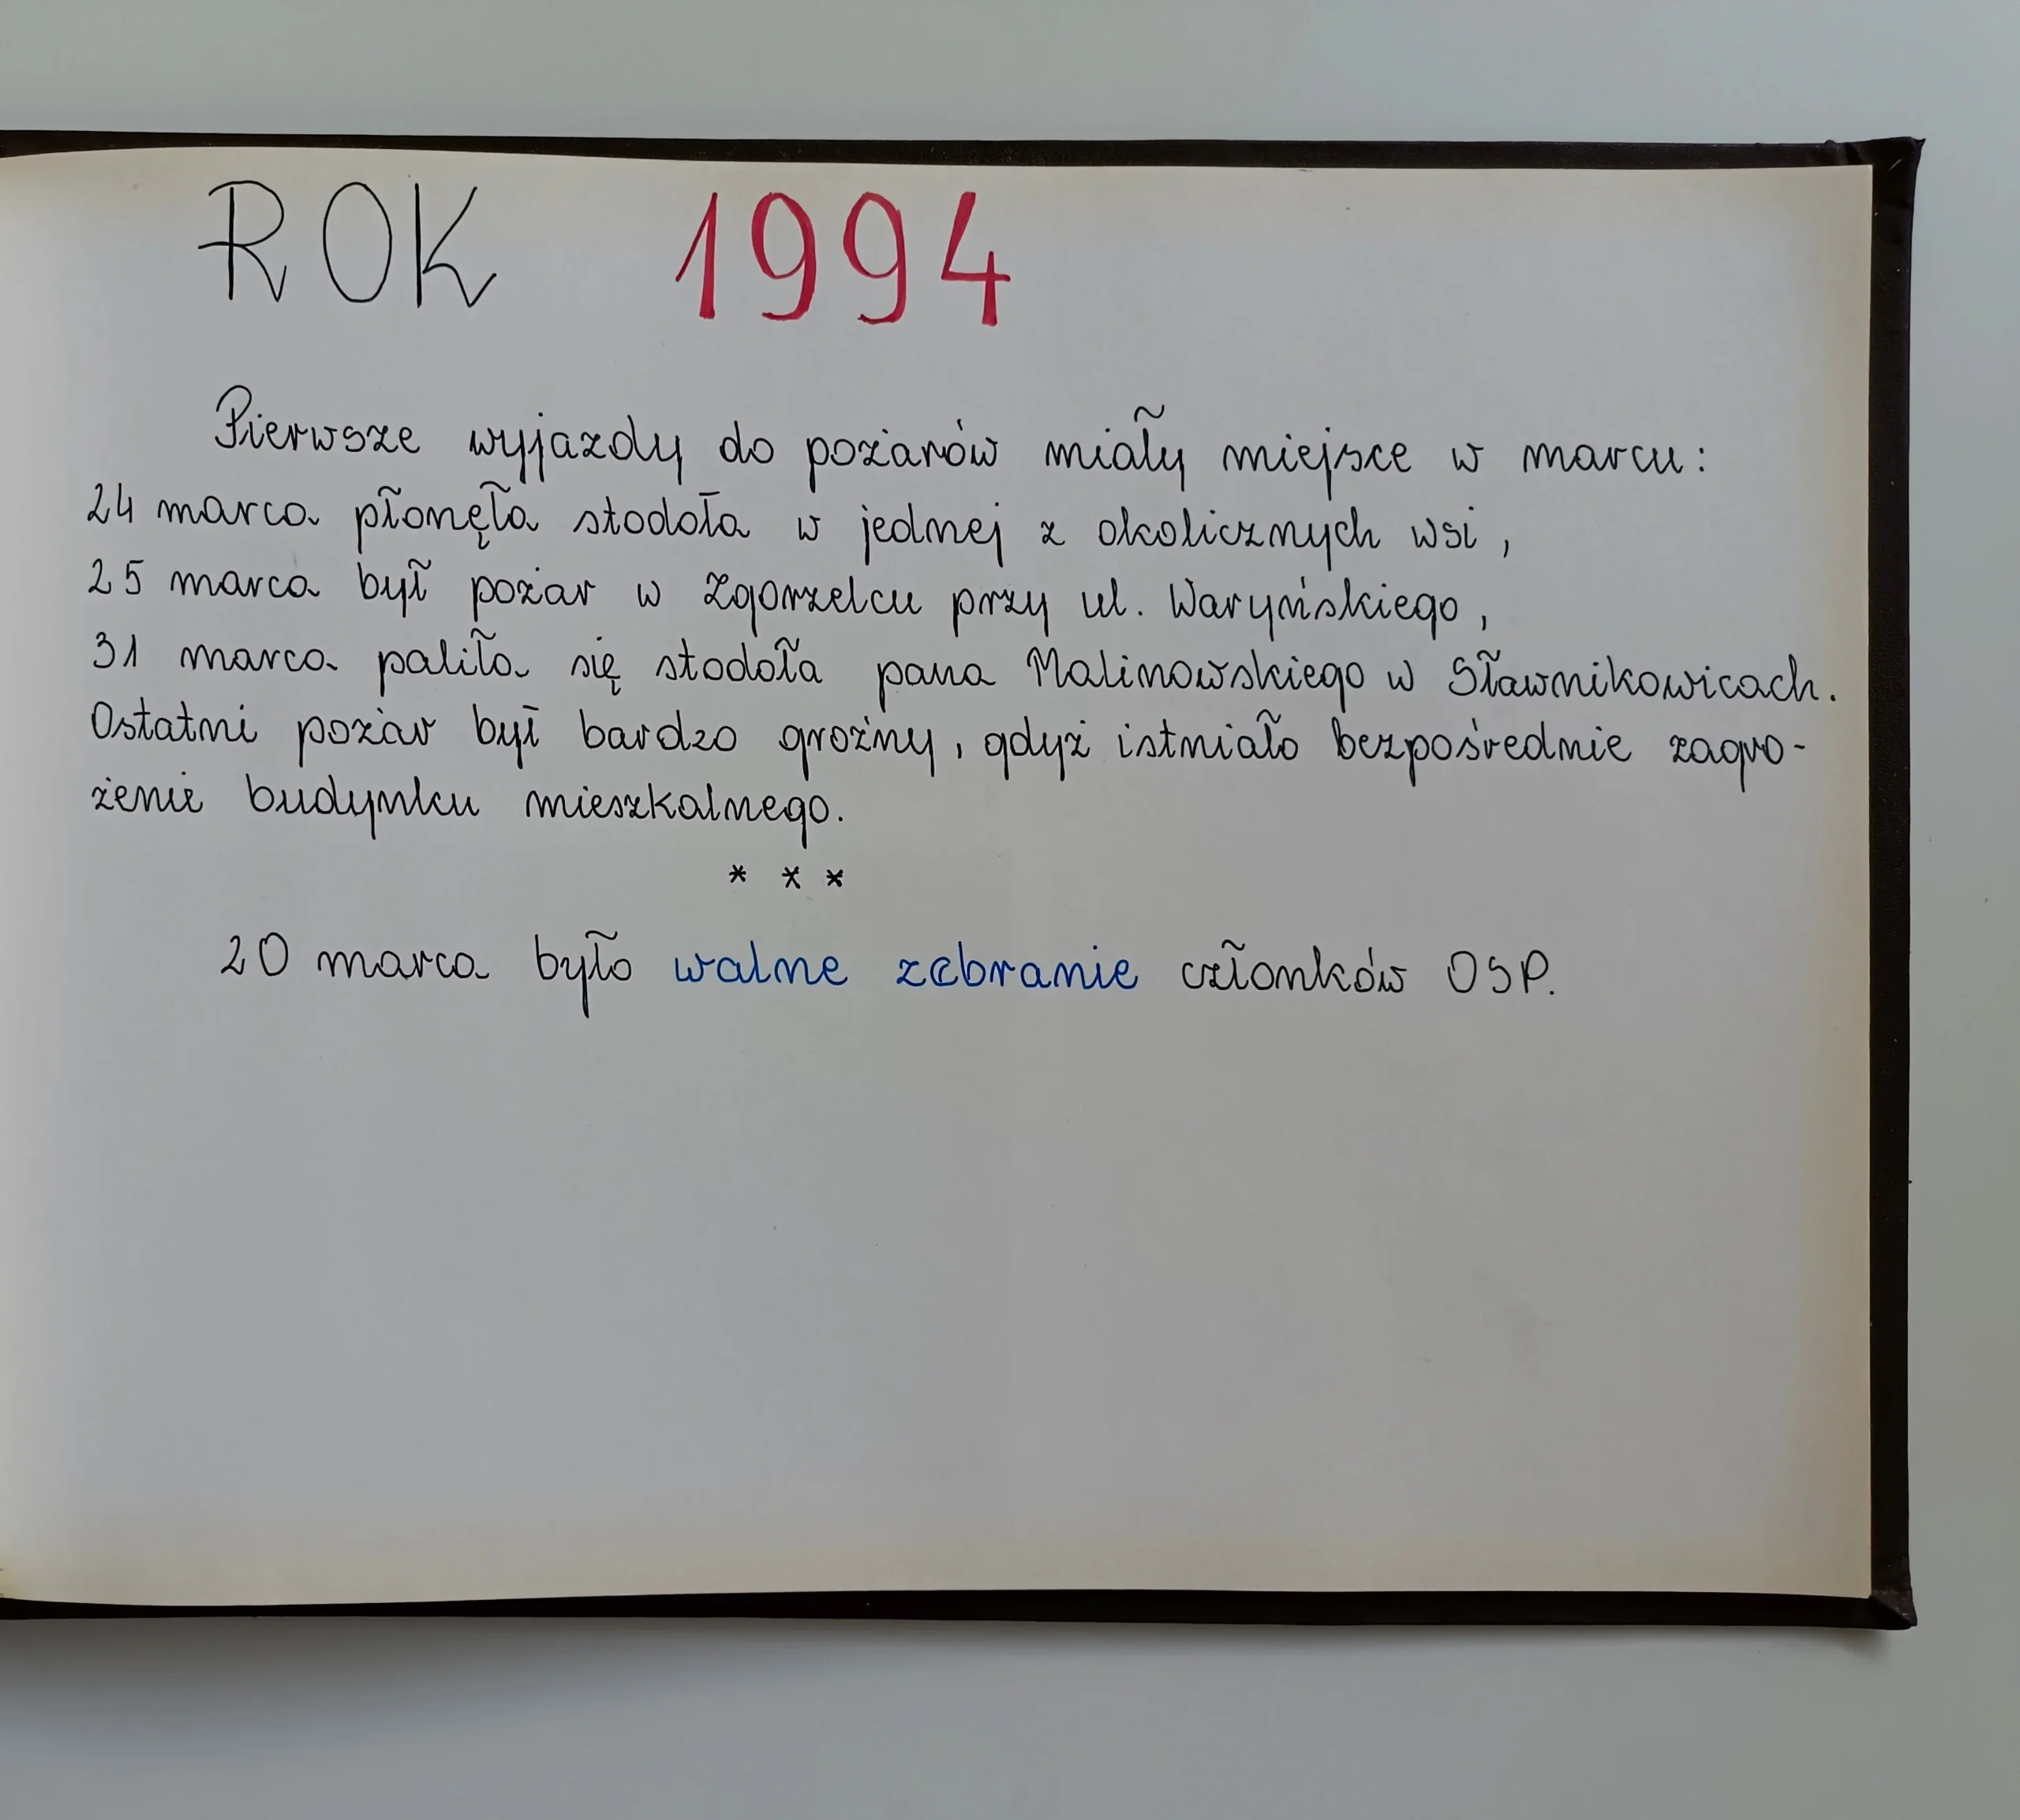 ROK 1994
Pierwsze wyjazdy do pożarów miały miejsce w marcu:
24 marca płonęła stodoła w jednej z okolicznych wsi,
25 marca był pożar w Zgorzelcu przy ul. Waryńskiego,
31 marca paliła się stodoła pana Malinowskiego w Sławnikowicach.
Ostatni pożar był bardzo groźny, gdyż istniało bezpośrednie zagro-
żenie budynku mieszkalnego.
* * *
20 marca było walne zebranie członków OSP.